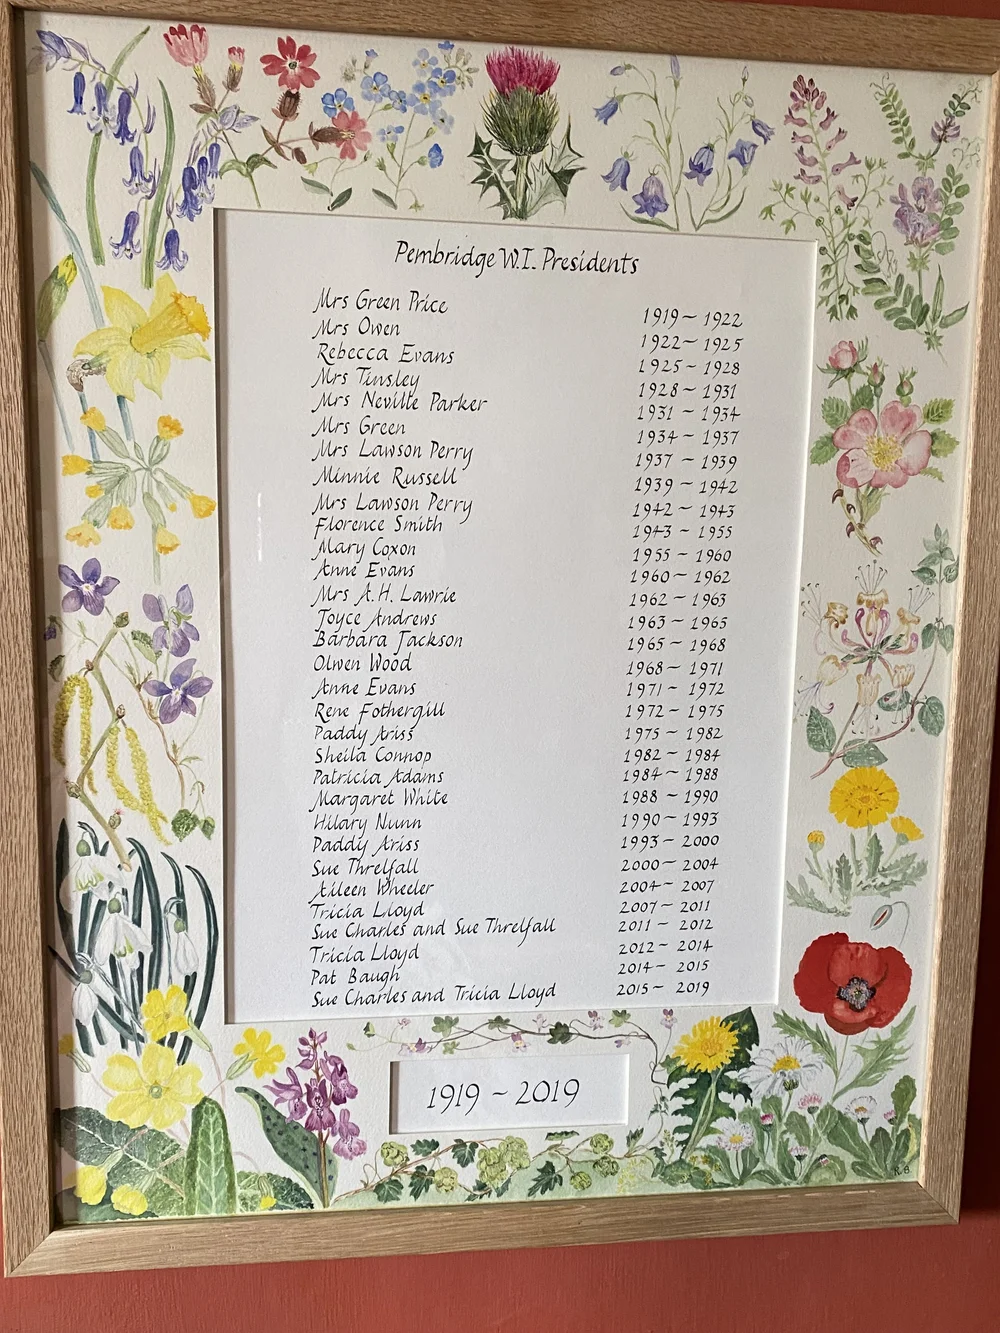 Pembridge W.I. Presidents
Mrs Green Price 1919 ~ 1922
Mrs Owen 1922 ~ 1925
Rebecca Evans 1925 ~ 1928
Mrs Tinsley 1928 ~ 1931
Mrs Neville Parker 1931 ~ 1934
Mrs Green 1934 ~ 1937
Mrs Lawson Perry 1937 ~ 1939
Minnie Russell 1939 ~ 1942
Mrs Lawson Perry 1942 ~ 1943
Florence Smith 1943 ~ 1955
Mary Coxon 1955 ~ 1960
Anne Evans 1960 ~ 1962
Mrs A.H. Lawrie 1962 ~ 1963
Joyce Andrews 1963 ~ 1965
Barbara Jackson 1965 ~ 1968
Olwen Wood 1968 ~ 1971
Anne Evans 1971 ~ 1972
Rene Fothergill 1972 ~ 1975
Paddy Ariss 1975 ~ 1982
Sheila Connop 1982 ~ 1984
Patricia Adams 1984 ~ 1988
Margaret White 1988 ~ 1990
Hilary Nunn 1990 ~ 1993
Paddy Ariss 1993 ~ 2000
Sue Threlfall 2000 ~ 2004
Aileen Wheeler 2004 ~ 2007
Tricia Lloyd 2007 ~ 2011
Sue Charles and Sue Threlfall 2011 ~ 2012
Tricia Lloyd 2012 ~ 2014
Pat Baugh 2014 ~ 2015
Sue Charles and Tricia Lloyd 2015 ~ 2019
1919 ~ 2019